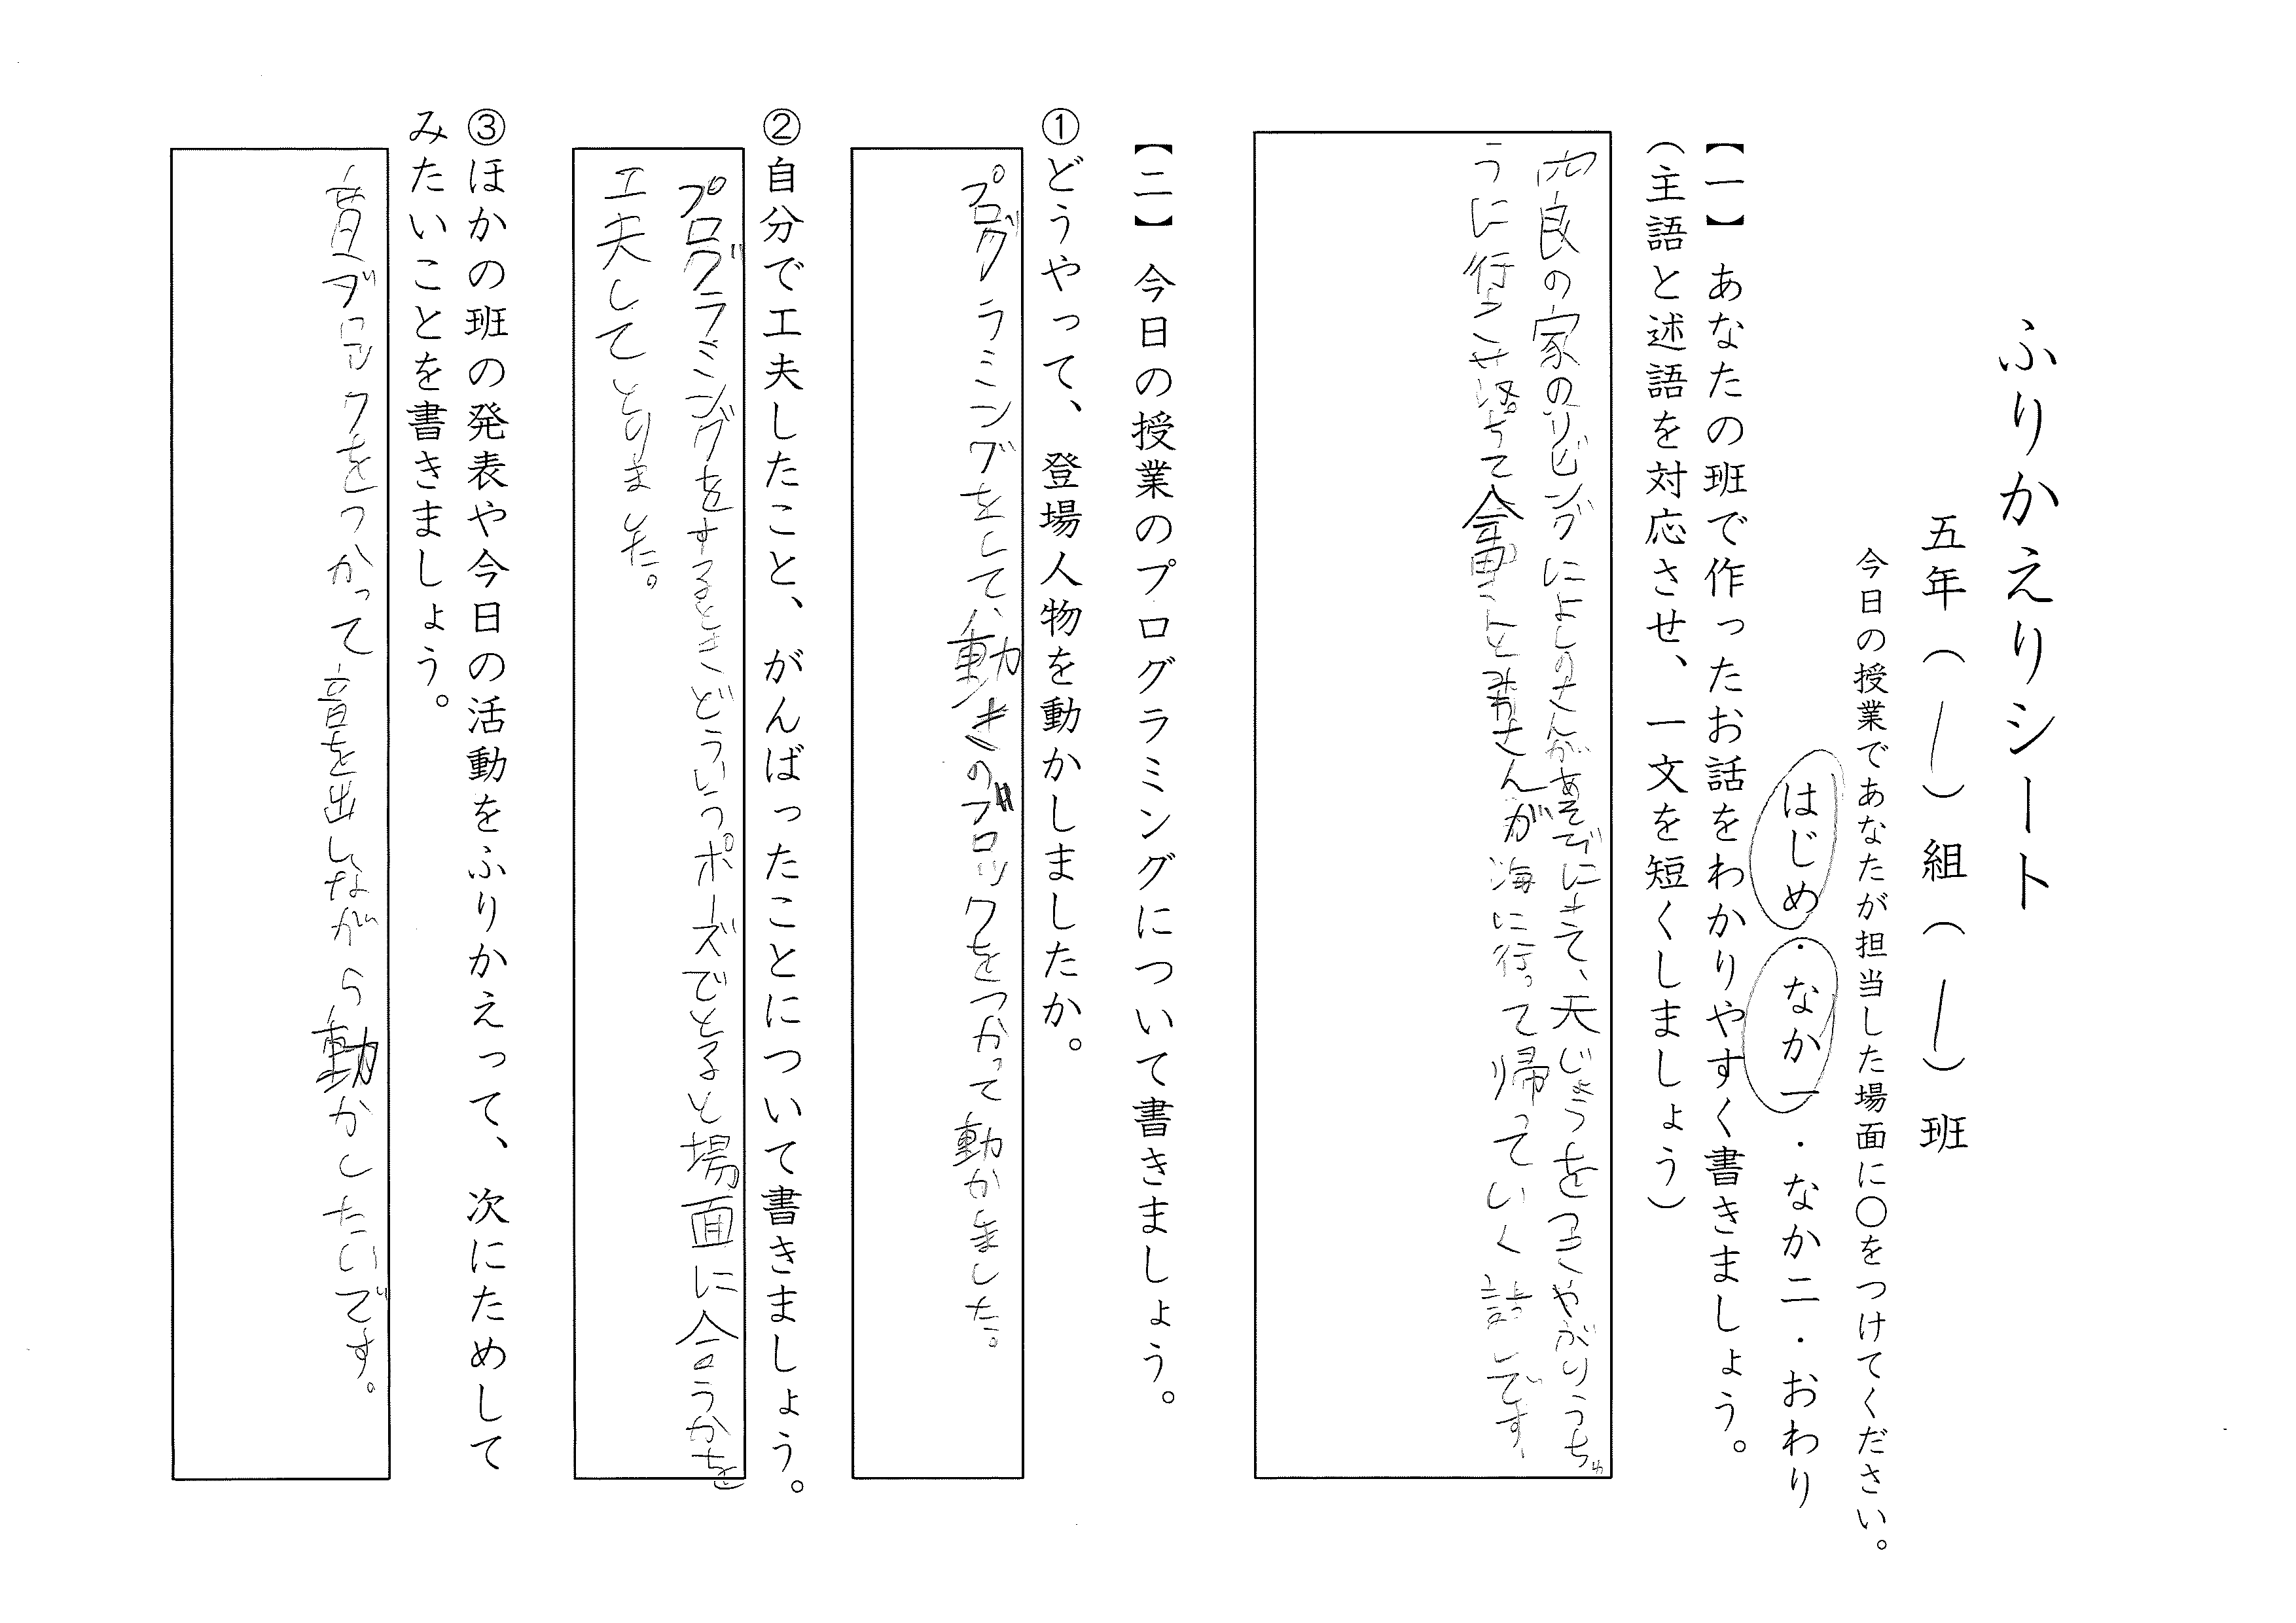 ふりかえりシート
五年（一）組（一）班
今日の授業であなたが担当した場面に〇をつけてください。
はじめ・なか一・なか二・おわり
【一】あなたの班で作ったお話をわかりやすく書きましょう。
（主語と述語を対応させ、一文を短くしましょう）
良の家のリビングによしのさんがあそびにきて、天じょうを
うに行って さんが海に行って帰っていく話しです
【二】今日の授業のプログラミングについて書きましょう。
①どうやって、登場人物を動かしましたか。
プログラミングをして、動きのブロックをつかって動かました。
②自分で工夫したこと、がんばったことについて書きましょう。
プログラミングをするときどういうポーズでとると場面に合うかを
工夫してとりました。
③ほかの班の発表や今日の活動をふりかえって、次にためして
みたいことを書きましょう。
音ブロックをつかって音を出しながら動かしたいです。